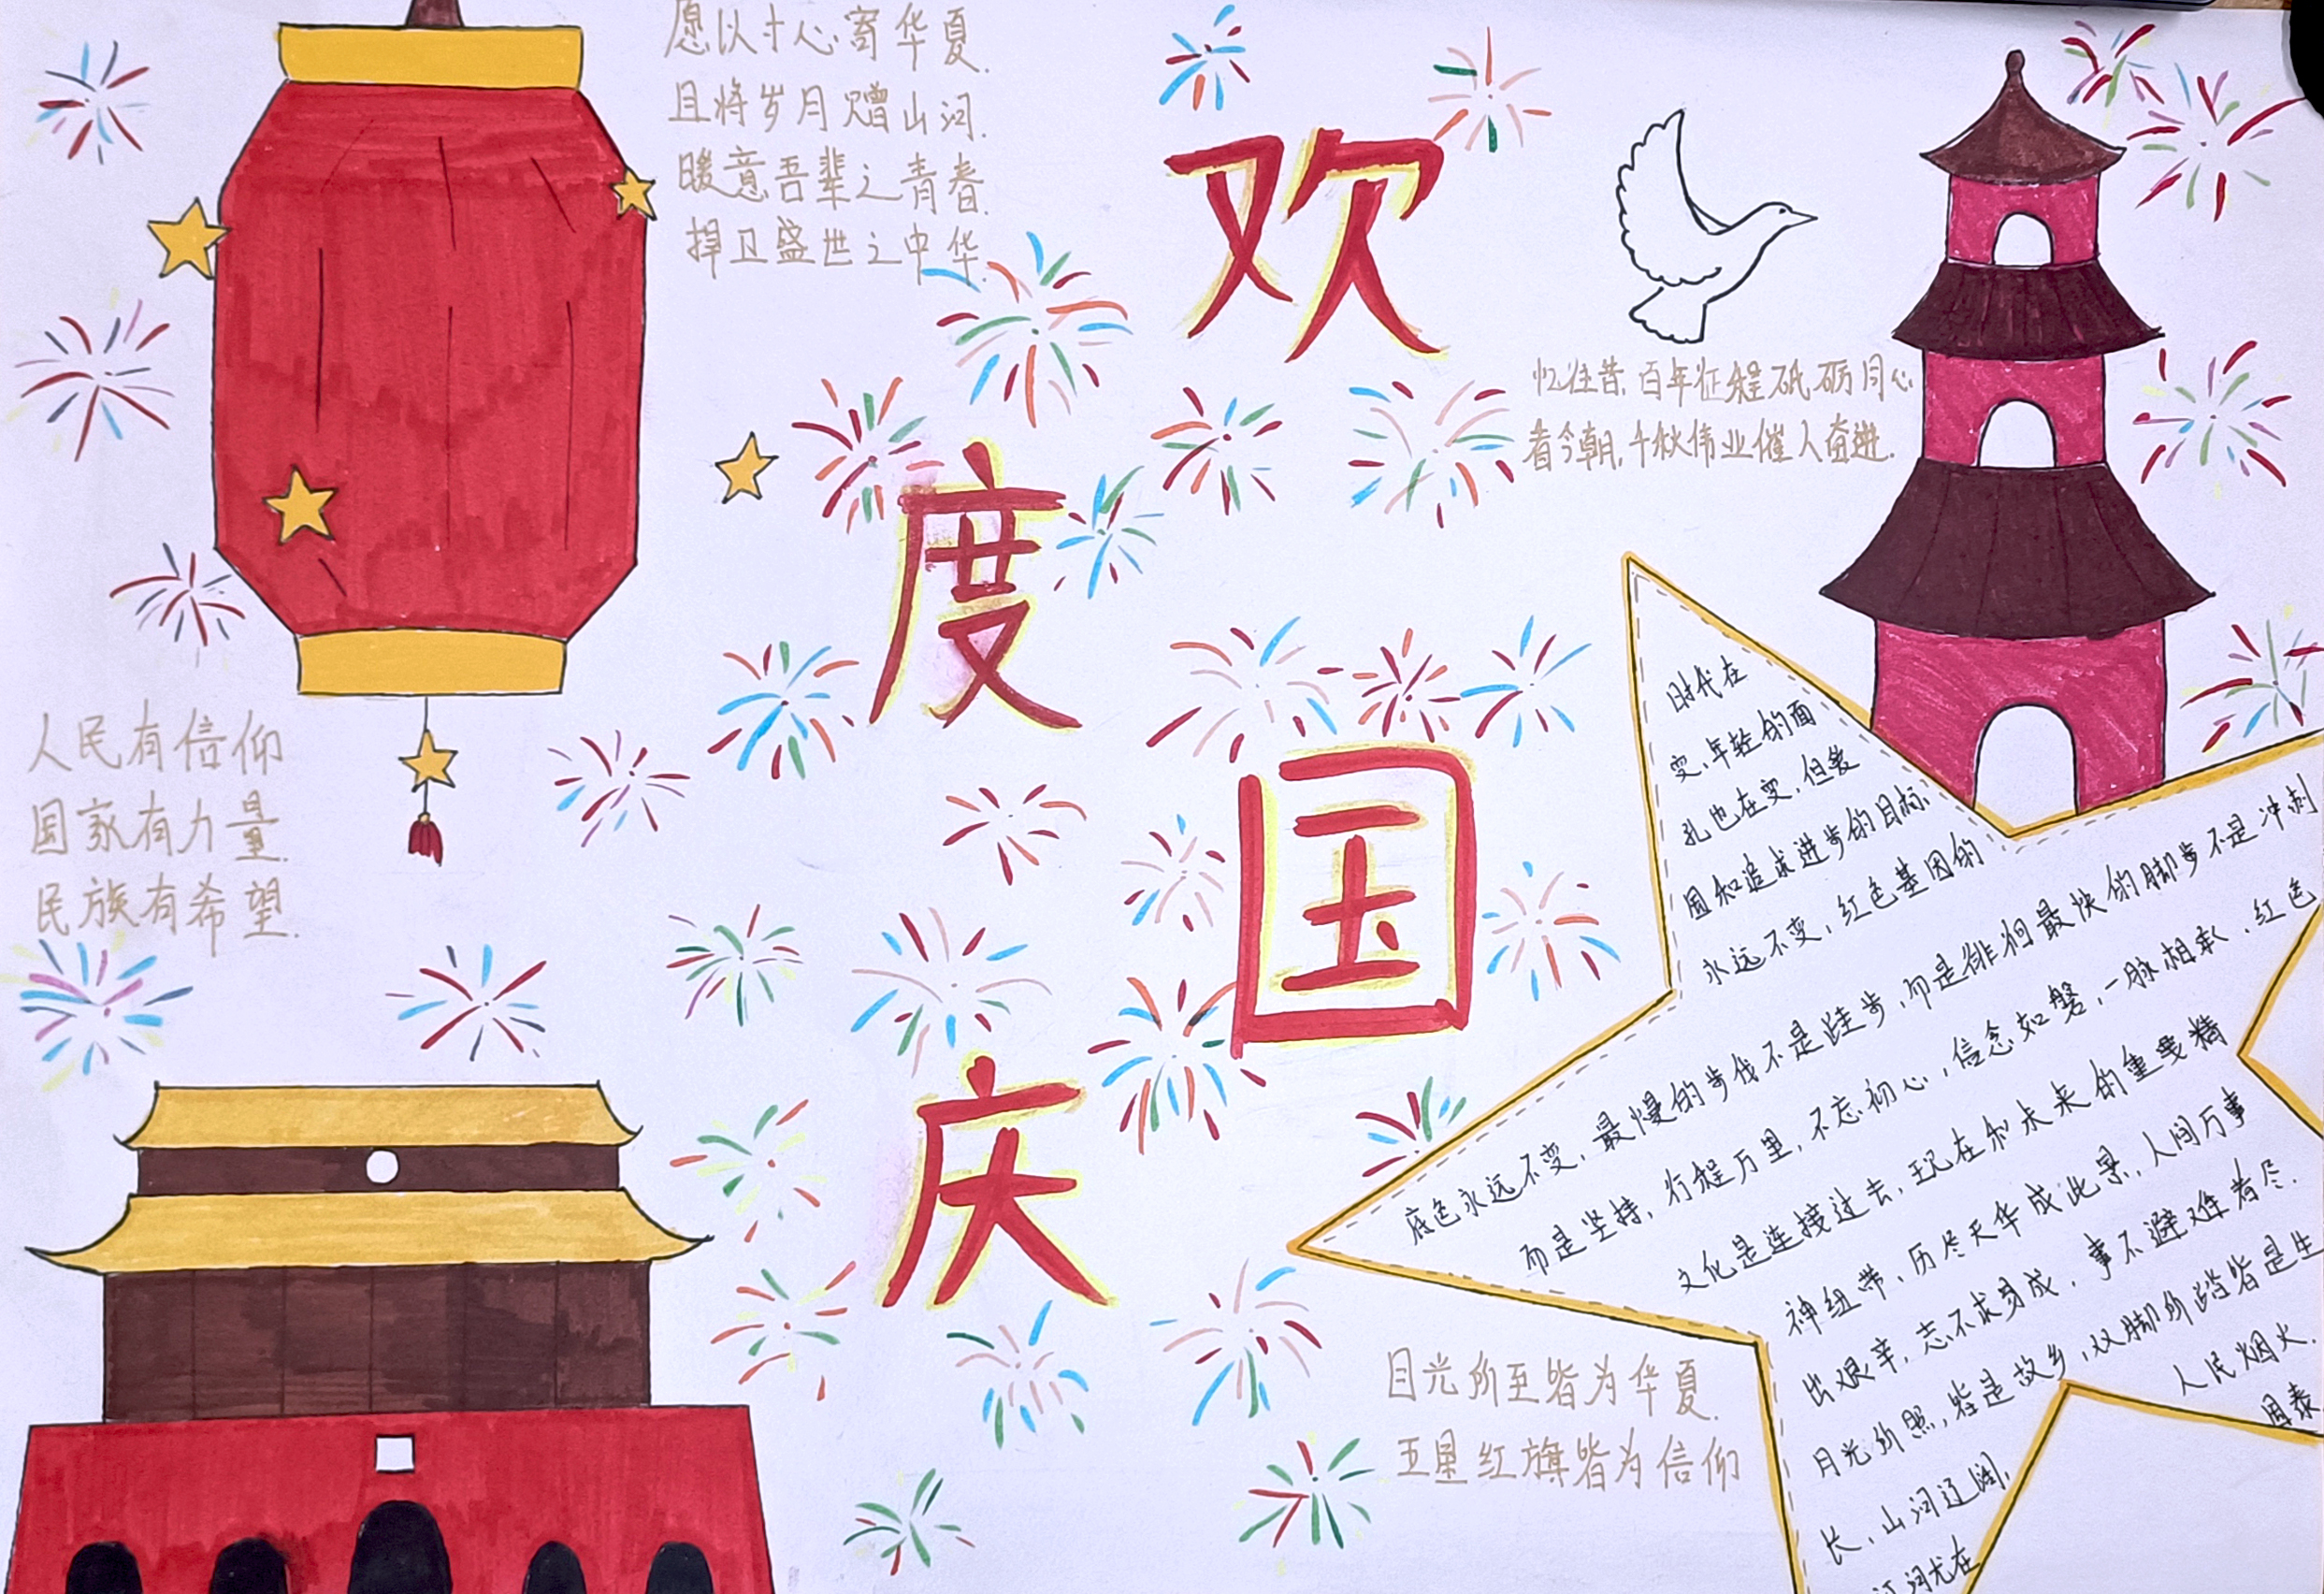 愿以寸心寄华夏.
且将岁月赠山河.
暖意吾辈之青春.
捍卫盛世之中华.
欢
度
国
庆
忆往昔,百年征程砥砺同心
看今朝,千秋伟业催人奋进.
人民有信仰
国家有力量.
民族有希望.
时代在
变,年轻的面
孔也在变,但爱
国和追求进步的目标
永远不变,红色基因的
底色永远不变,最慢的步伐不是跬步,而是徘徊最快的脚步不是冲刺
而是坚持,行程万里,不忘初心,信念如磐,一脉相承,红色
文化是连接过去,现在和未来的重要精
神纽带,历尽天华成此景,人间万事
出艰辛,志不求易成,事不避难者尽.
月光所照,皆是故乡,双脚所踏皆是生
长,山河辽阔,
人民烟火.
国泰
江河尤在
目光所至皆为华夏.
五星红旗皆为信仰